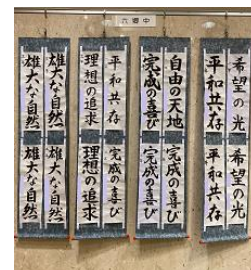 六郷中
希望の光
平和共存
希望の光
平和共存
自由の天地
完成の喜び
完成の喜び
完成の喜び
平和共存
理想の追求
完成の喜び
理想の追求
雄大な自然
雄大な自然
雄大な自然
雄大な自然